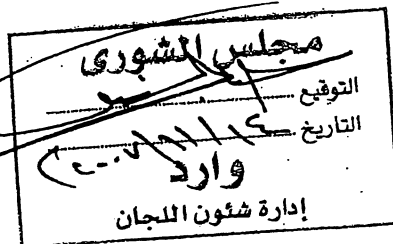 مجلس الشورى
التوقيع
التاريخ
وارد
إدارة شئون اللجان